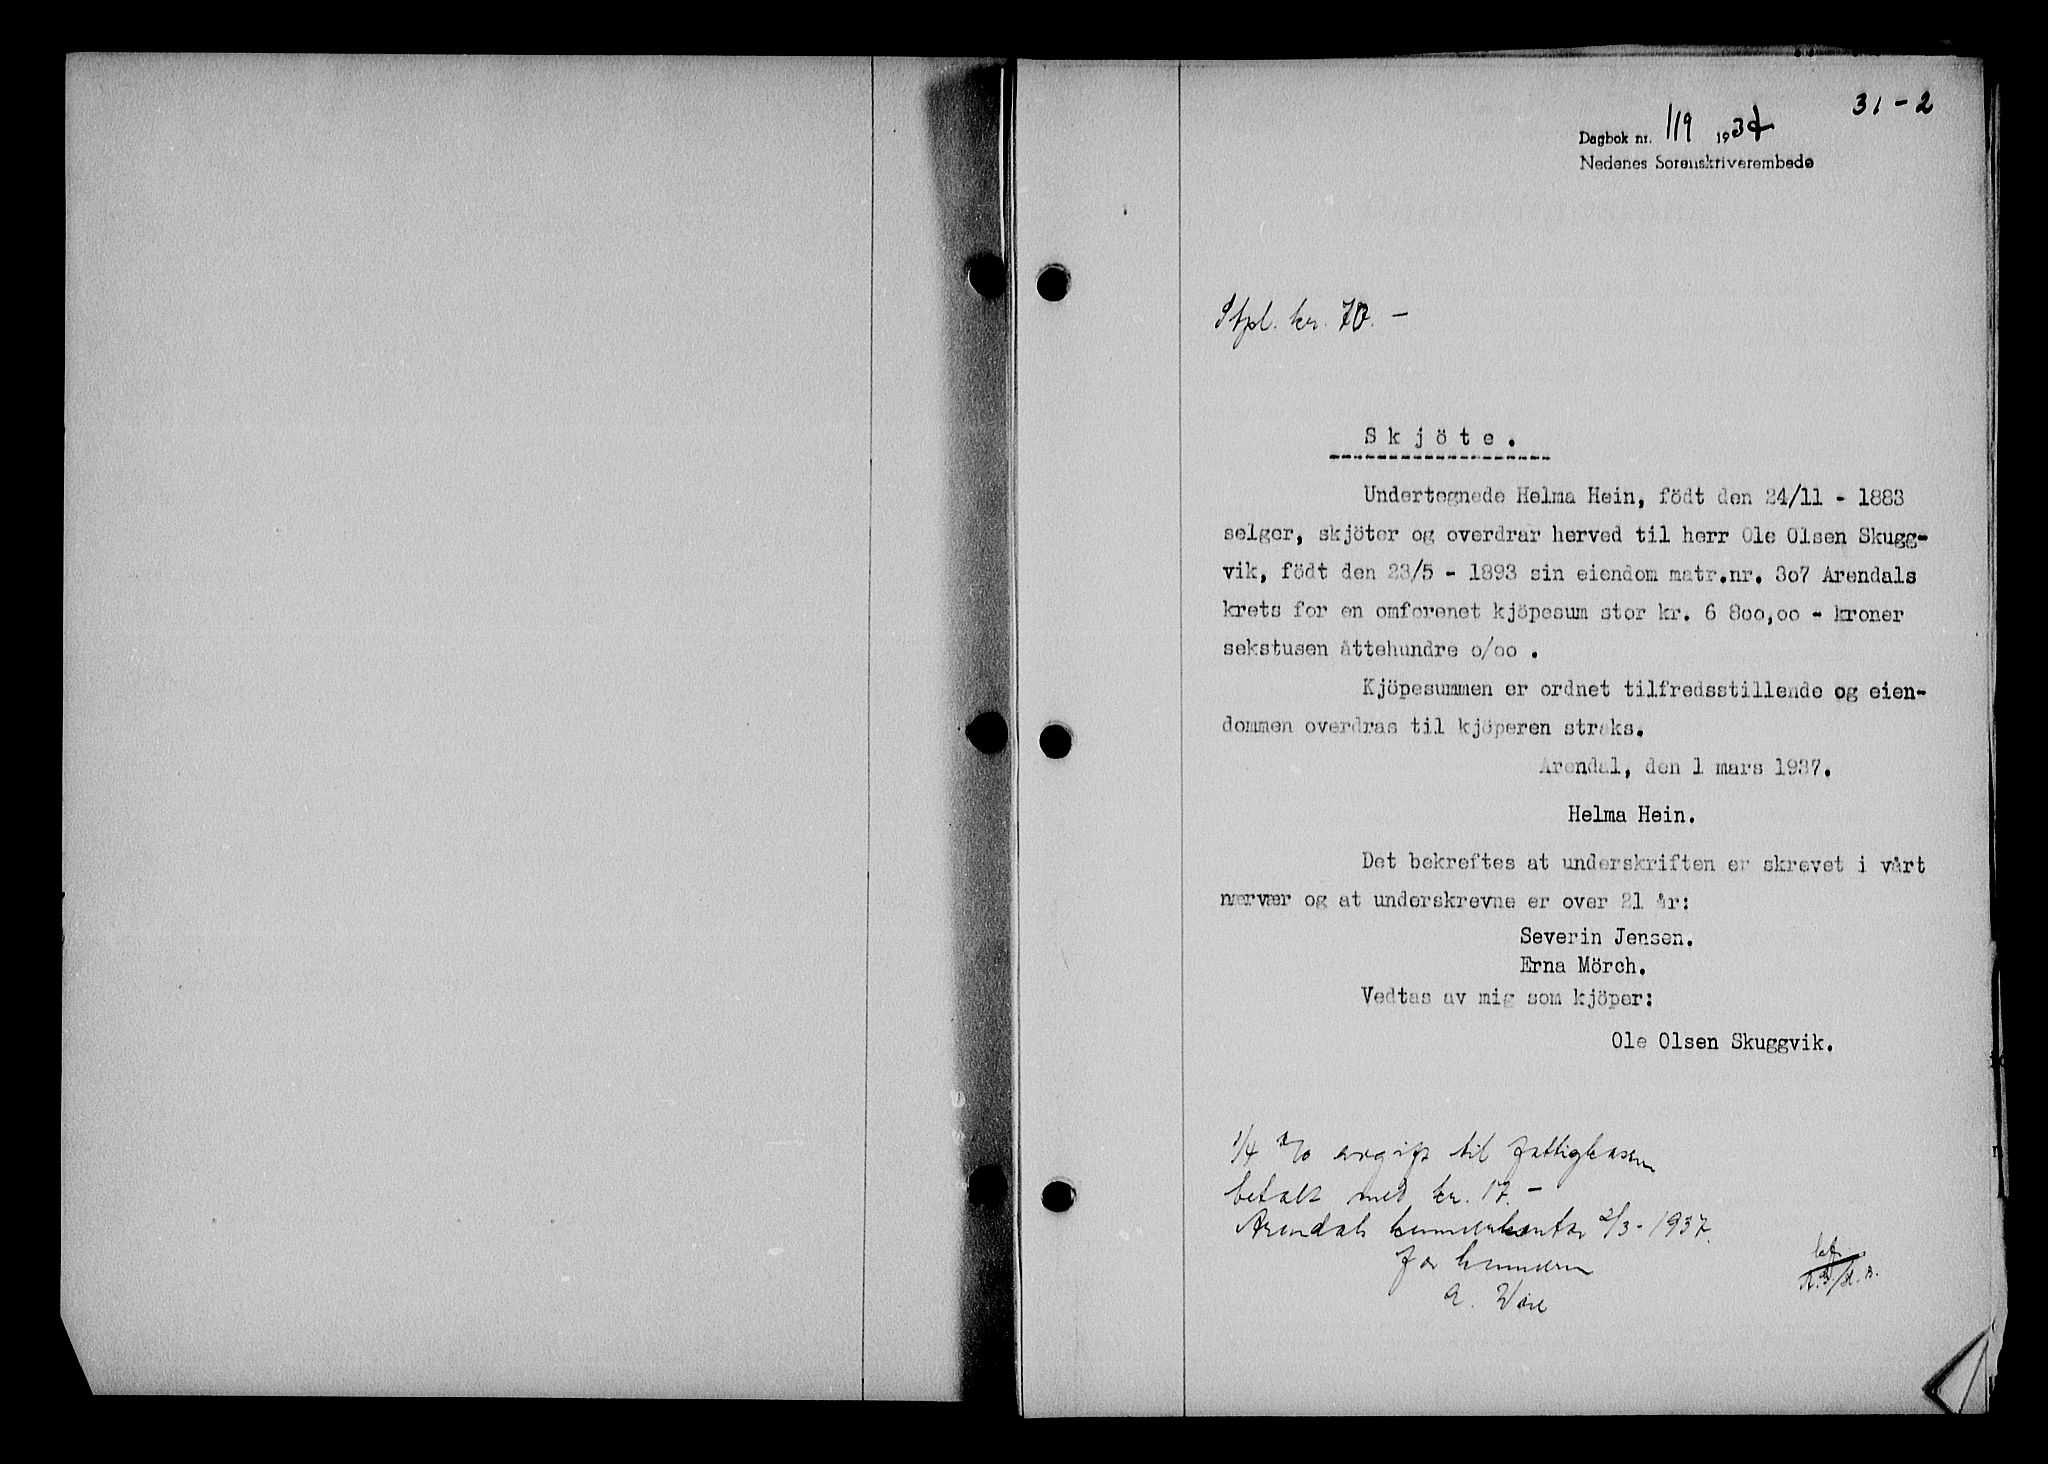 31-2
Dagbok nr. 119 1937
Nedenes Sorenskriverembede
Stpl. kr. 70.-
Skjöte.
Undertegnede Helma Hein, födt den 24/11 - 1883
selger, skjöter og overdrar herved til herr Ole Olsen Skugg-
vik, födt den 23/5 - 1893 sin eiendom matr.nr. 3o7 Arendals
krets for en omforenet kjöpesum stor kr. 6 8oo,oo - kroner
sekstusen åttehundre o/oo .
Kjöpesummen er ordnet tilfredsstillende og eien-
dommen overdras til kjöperen straks.
Arendal, den 1 mars 1937.
Helma Hein.
Det bekreftes at underskriften er skrevet i vårt
nærvær og at underskrevne er over 21 år:
Severin Jensen.
Erna Mörch.
Vedtas av mig som kjöper:
Ole Olsen Skuggvik.
1/4 % avgift til fattigkassen
betalt med kr. 17.-
Arendals kemnerkontor 2/3-1937.
for kemneren